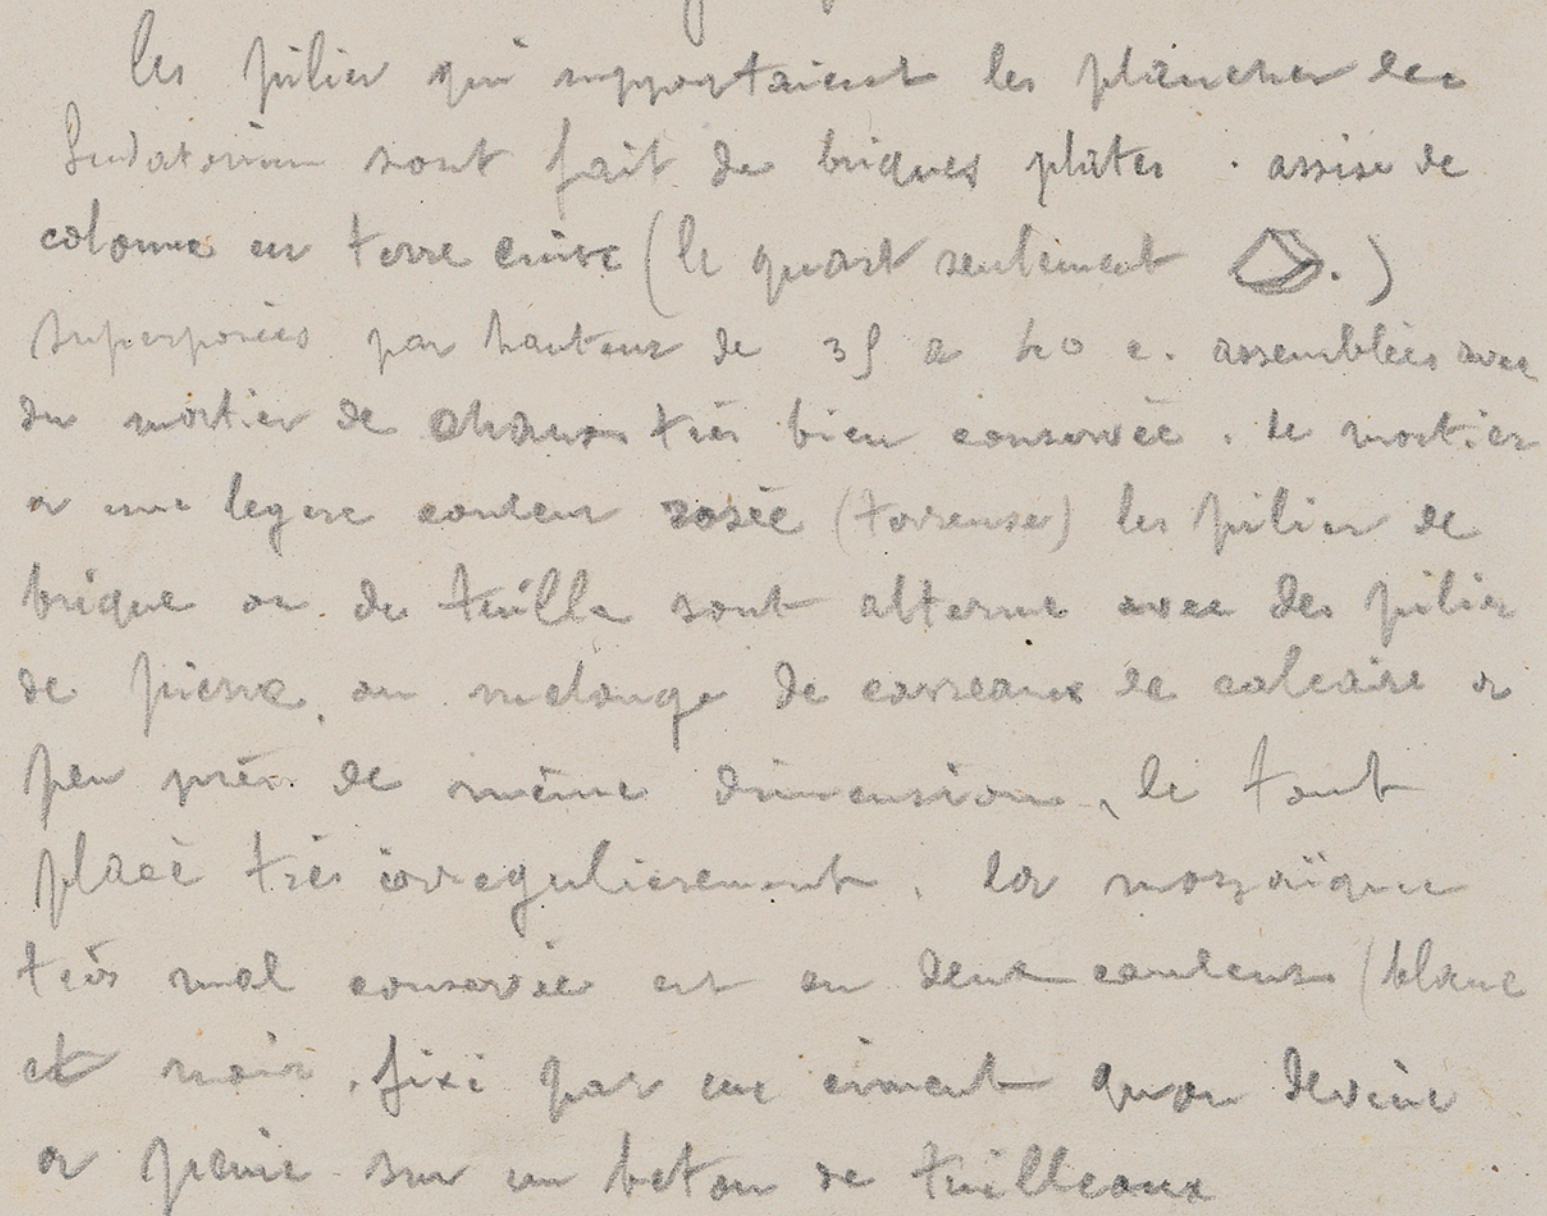 les pilier qui supportaient les plancher des
Sudatorium sont fait de briques plates . assise de
colonne en terre cuite (le quart seulement .)
superposées par hauteur de 35 a 40 c. assemblées avec
du mortier de chaux très bien conservée . le mortier
a une legere couleur rosée (terreuse) les pilier de
brique ou de tuille sont alterne avec des pilier
de pierre, ou melange de carreaux de calcaire a
peu près de même dimension, le tout
placé très irregulierement . la mozaïque
très mal conservée est en deux couleurs (blanc
et noir . fixé par un ciment quon devine
a peine sur un beton de tuilleaux